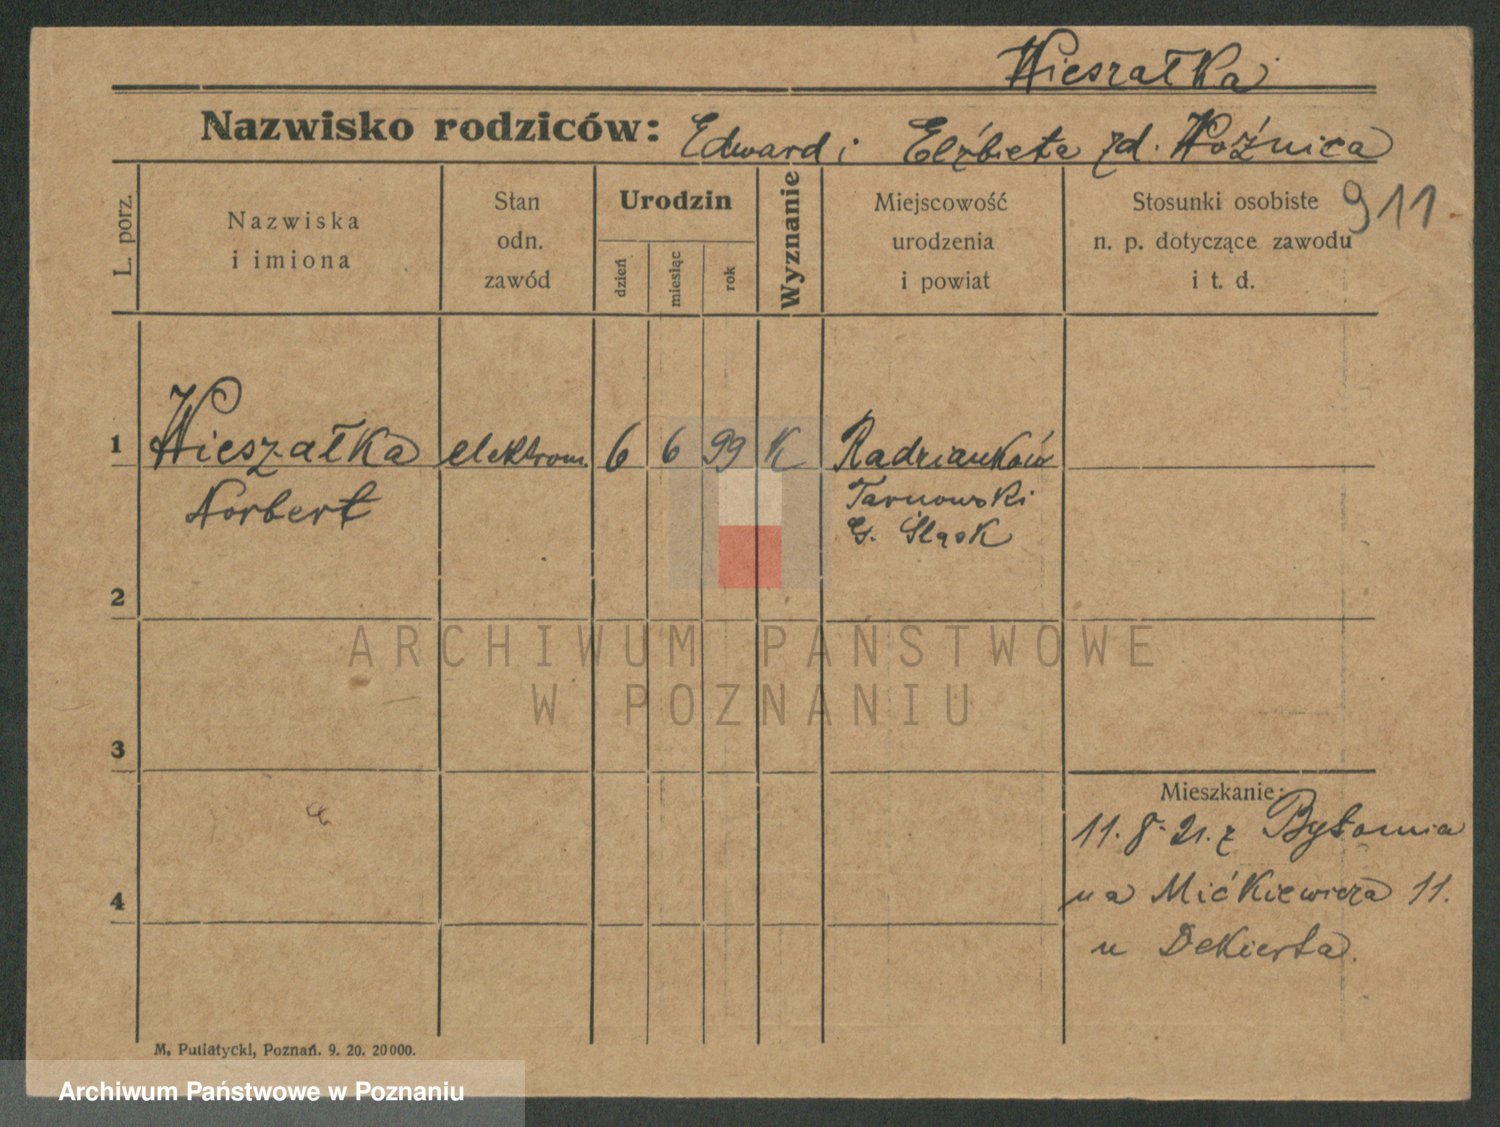 Wieszałka
Nazwisko rodziców: Edward i Elżbieta zd. Woźnica
911
L. porz.
Nazwiska
i imiona
Stan
odn.
zawód
Urodzin
dzień
miesiąc
rok
Wyznanie
Miejscowość
urodzenia
i powiat
Stosunki osobiste
n. p. dotyczące zawodu
i t. d.
1 Wieszałka elektrom. 6 6 99 K Radzianków
Norbert Tarnowski
G. Śląsk
2
ARCHIWUM PAŃSTWOWE
W POZNANIU
3
Mieszkanie:
11. 8. 21. z Bytomia
4
na Mićkiewicza 11.
u Dekierta.
M. Putiatycki, Poznań. 9. 20. 20000.
Archiwum Państwowe w Poznaniu